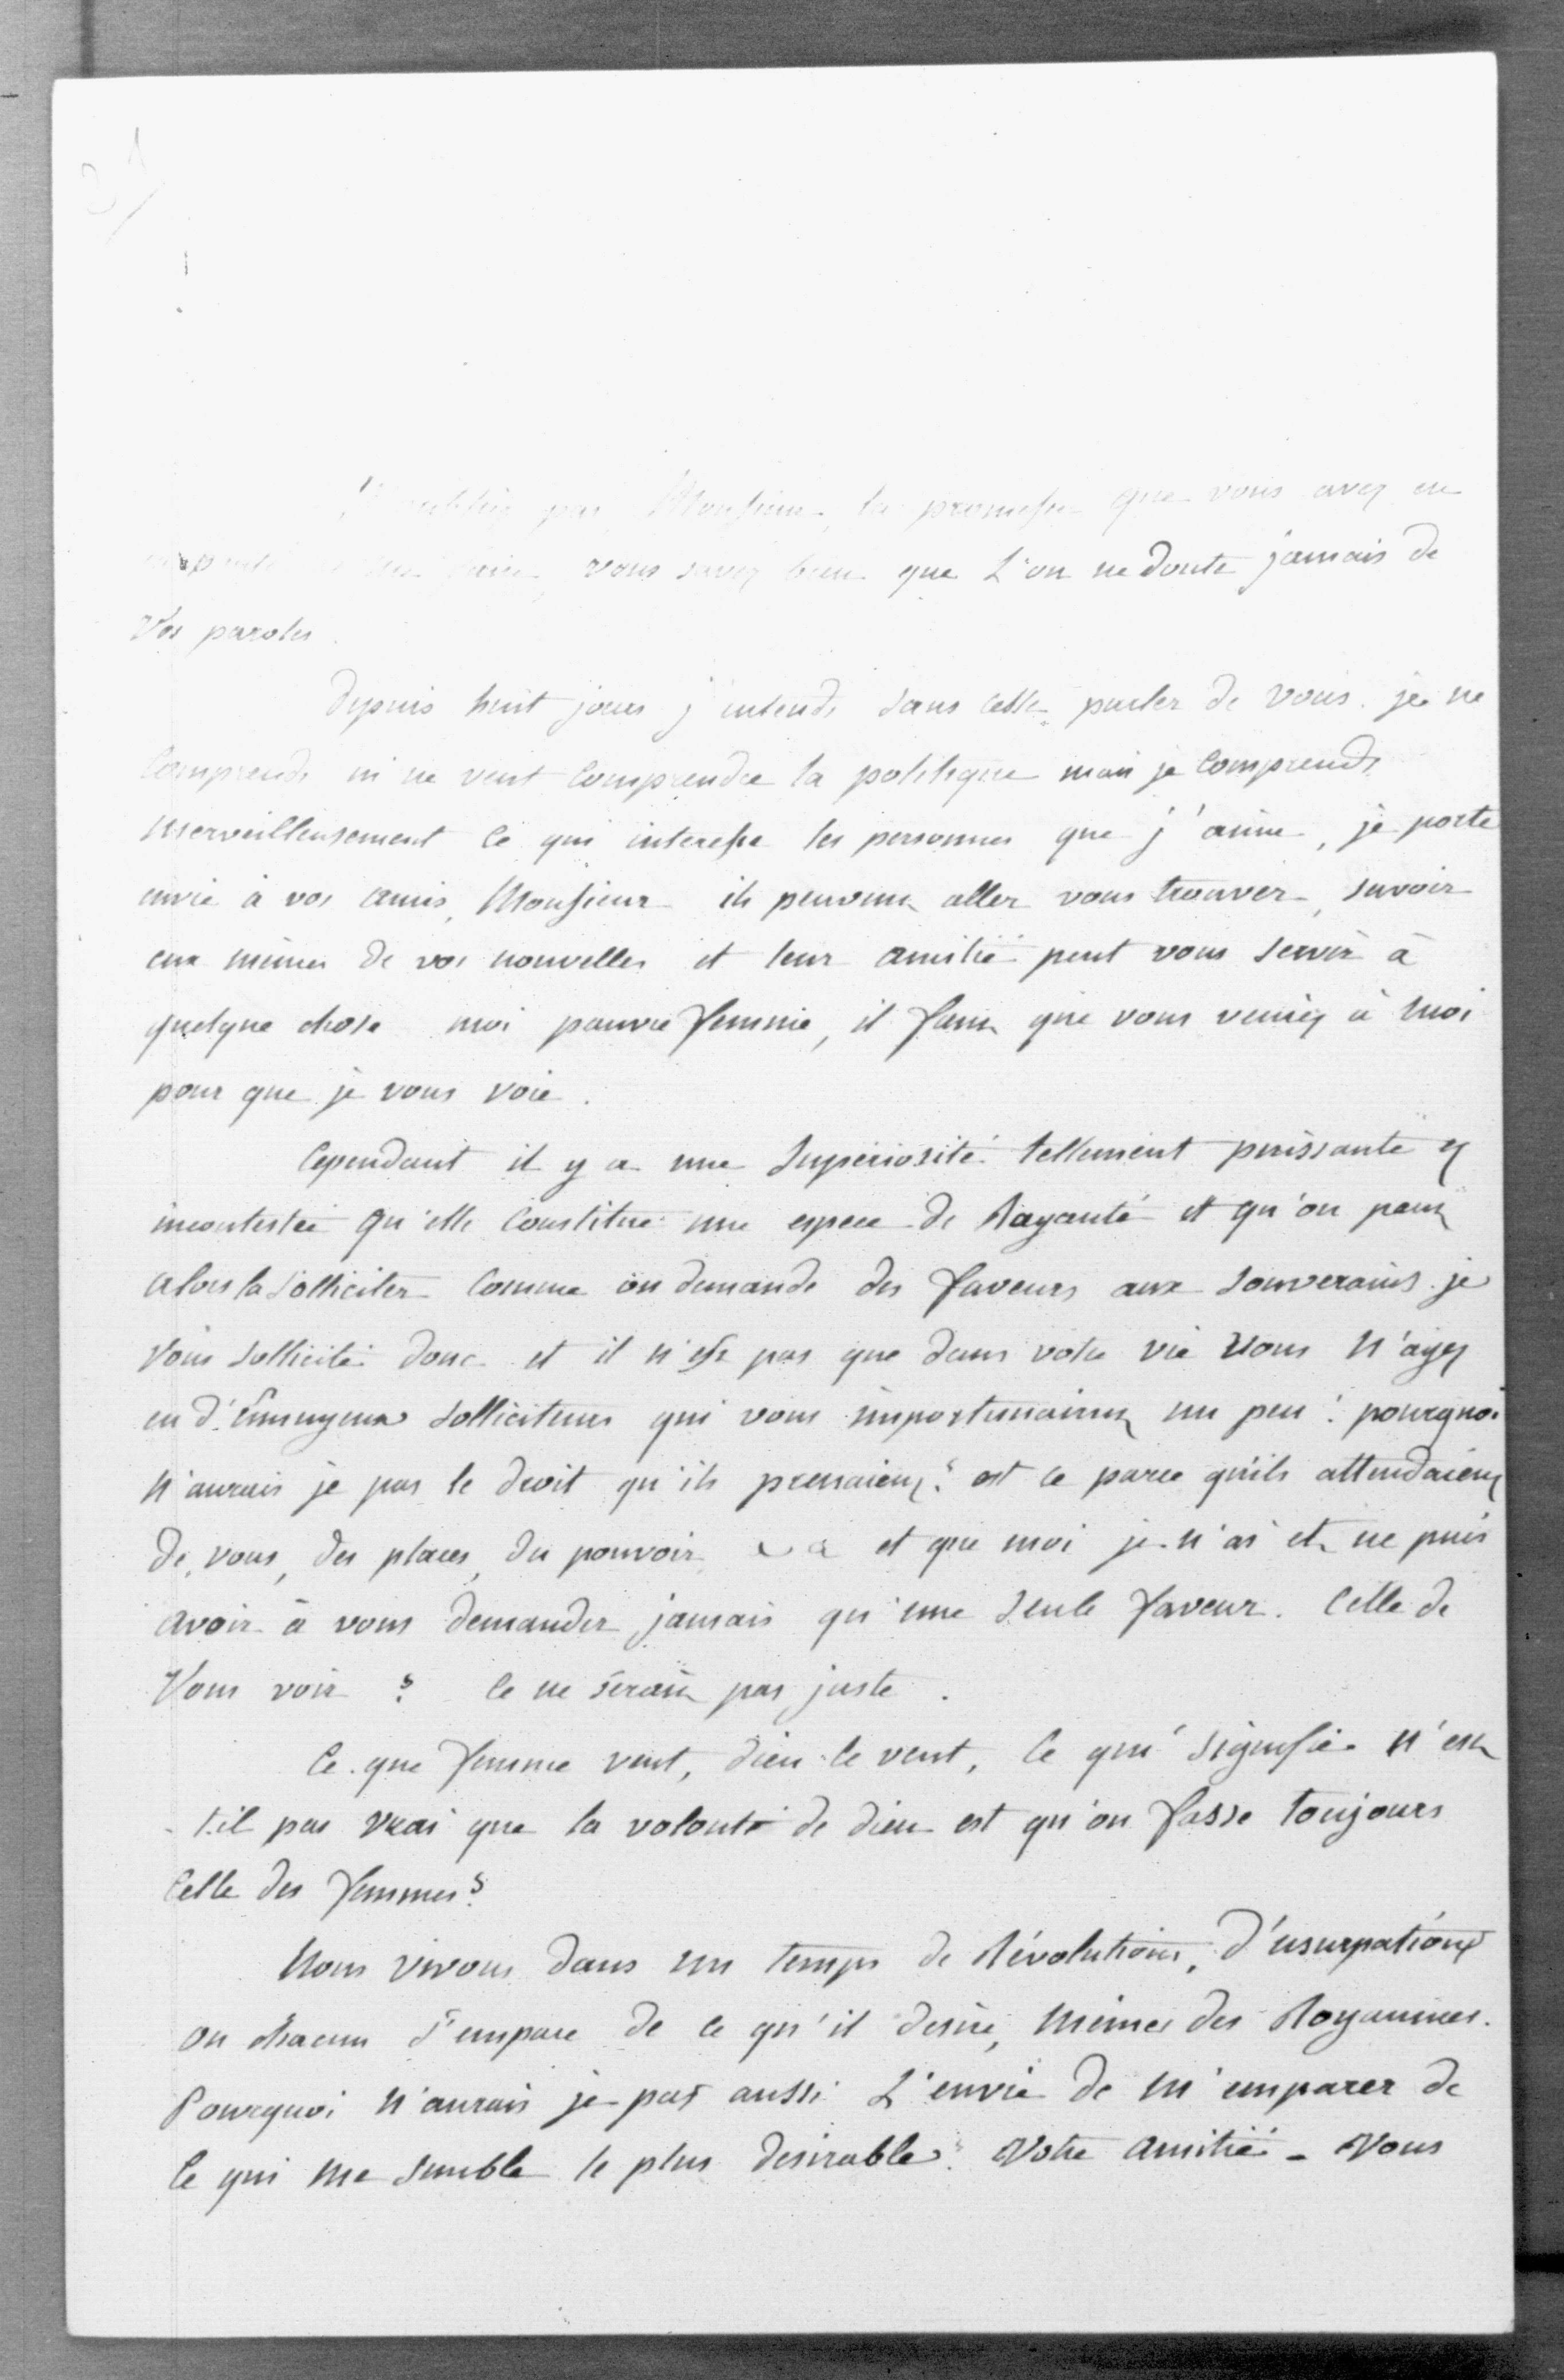 31
pas Monsieur, la promesse que vous avez en
vous savez bien que L'on ne doute jamais de
Vos paroles.
depuis huit jours j'entends sans cesse parler de vous. je ne
Comprends ni ne veut Comprendre la politique mais je Comprends
merveilleusement Ce qui interesse les personnes que j'aime, je porte
envie à vos amis, Monsieur ils peuvent aller vous trouver, savoir
eux mêmes de vos nouvelles et leur amitié peut vous servir à
quelque chose moi pauvre femme, il faut que vous veniez à moi
pour que je vous voie.
Cependant il y a une Superiorité tellement puissante et
incontestée qu'elle Constitue une espece de Royauté et qu'on peut
alors la Solliciter Comme on demande des faveurs aux Souverains. je
Vous Sollicite donc et il n'est pas que dans votre vie Vous N'ayez
eu d'Ennuyeux Solliciteurs qui vous importunaient un peu : pourquoi
N'aurais je pas le droit qu'ils prenaient ? est ce parce qu'ils attendaient
de vous, des places, du pouvoir et que moi je n'ai et ne puis
avoir à vous demander jamais qu'une seule faveur. Celle de
Vous voir ? Ce ne serait pas juste.
Ce que femme veut, dieu le veut, Ce qui signifie N'est
-t.il pas Vrai que la volonté de dieu est qu'on fasse toujours
Celle des femmes ?
Nous vivons dans un temps de Révolutions, d'usurpations
ou chacun S'empare de Ce qu'il desire, mêmes des Royaumes.
Pourquoi N'aurais je pas aussi L'envie de M'emparer de
Ce qui Me Semble le plus desirable ? Votre amitié - Vous